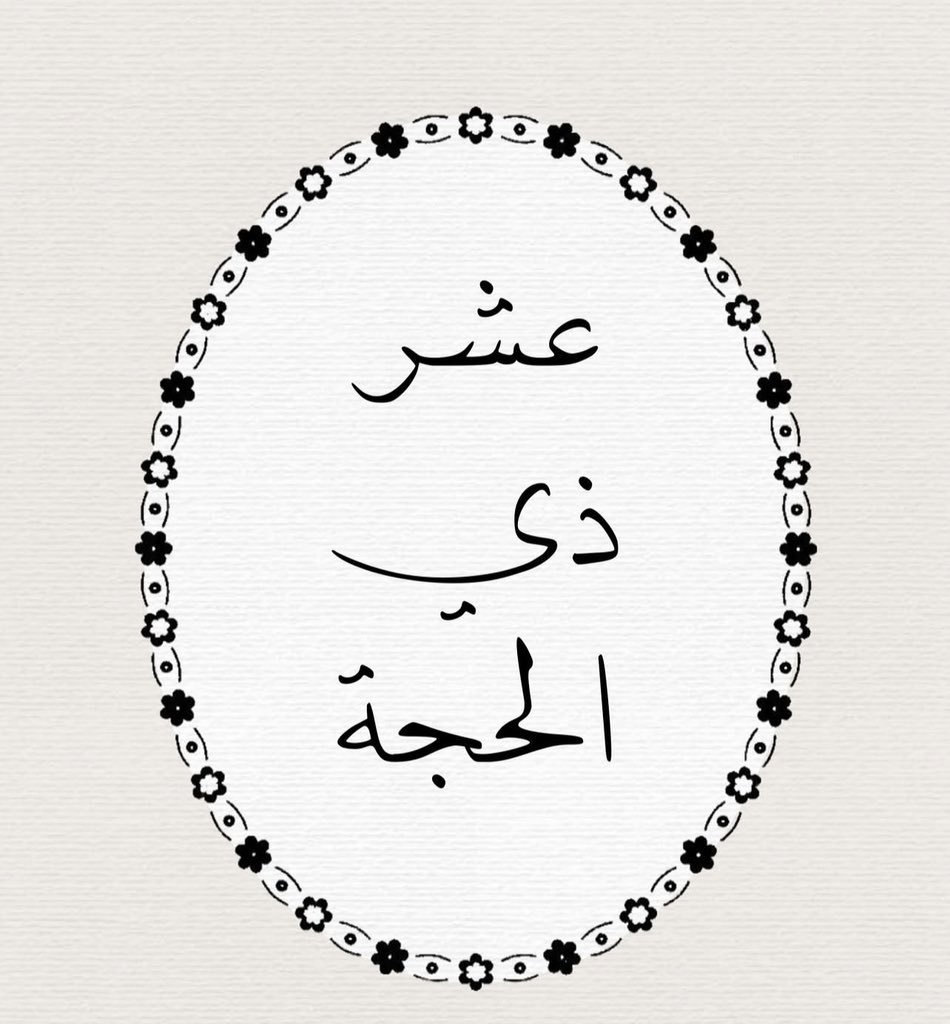 عشر
ذي
الحجة